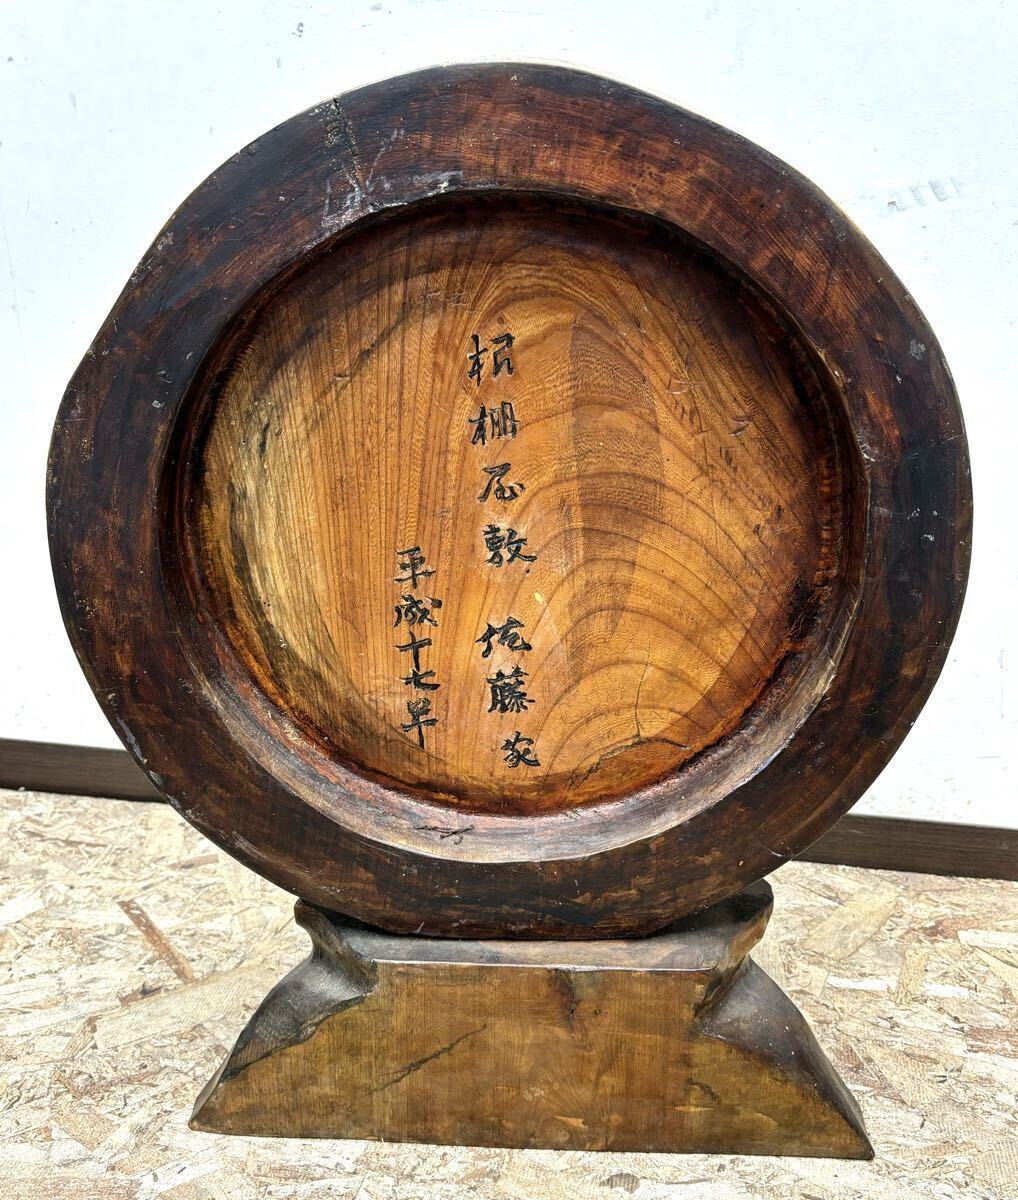 棚屋敷 佐藤家
平成十七年